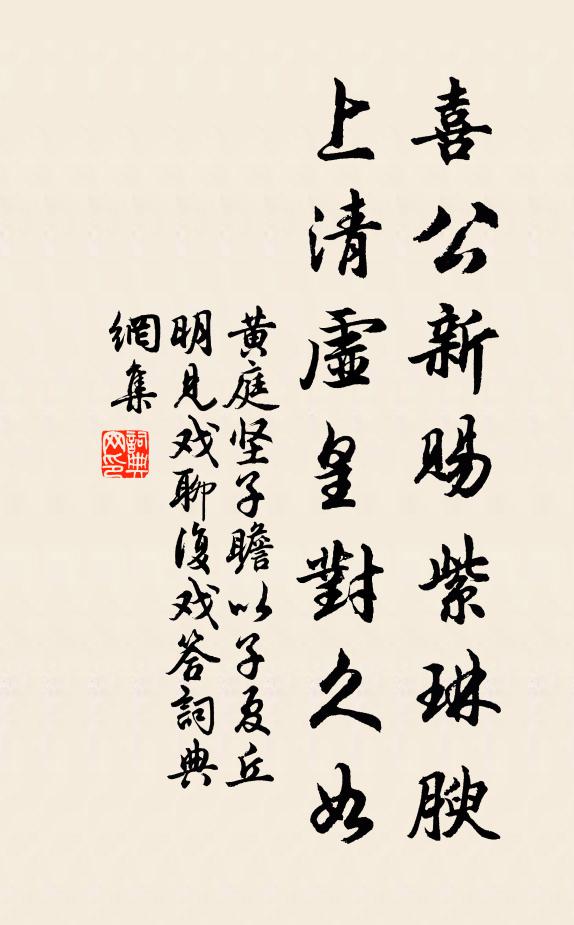 喜公新賜紫琳腴
上清虛皇對久如
黄庭坚子瞻以子夏丘
明见戏聊復戏答詞典
網集
詞典網印